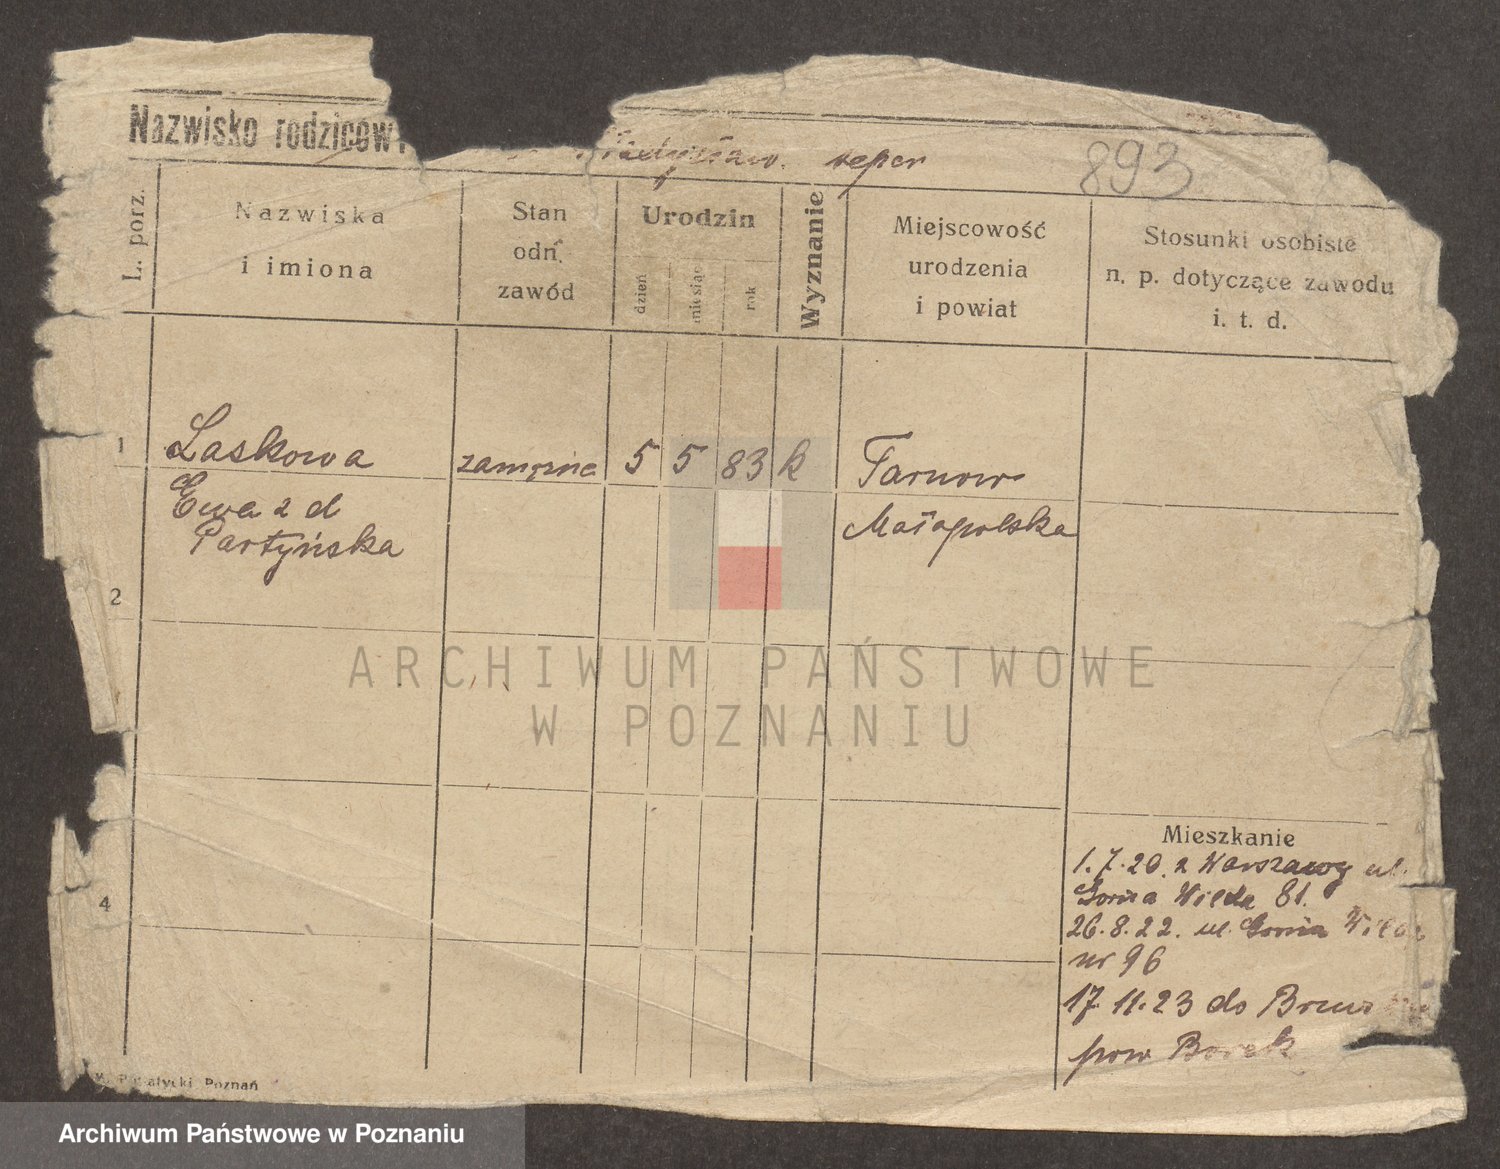 Nazwisko rodziców:
893
L. porz.
Nazwiska
i imiona
Stan
odn.
zawód
Urodzin
dzień
miesiąc
rok
Wyznanie
Miejscowość
urodzenia
i powiat
Stosunki osobiste
n. p. dotyczące zawodu
i. t. d.
1
Laskowa
zamężna
5
5
83
k
Tarnow
Ewa z d
Małapolska
Partyńska
2
4
Mieszkanie
1.7.20. z Warszawy ul.
Gorna Wilda 81.
26.8.22. ul. Gorna Wilda
nr 96
17.11.23 do
pow Borek
Poznań
ARCHIWUM PAŃSTWOWE
W POZNANIU
Archiwum Państwowe w Poznaniu